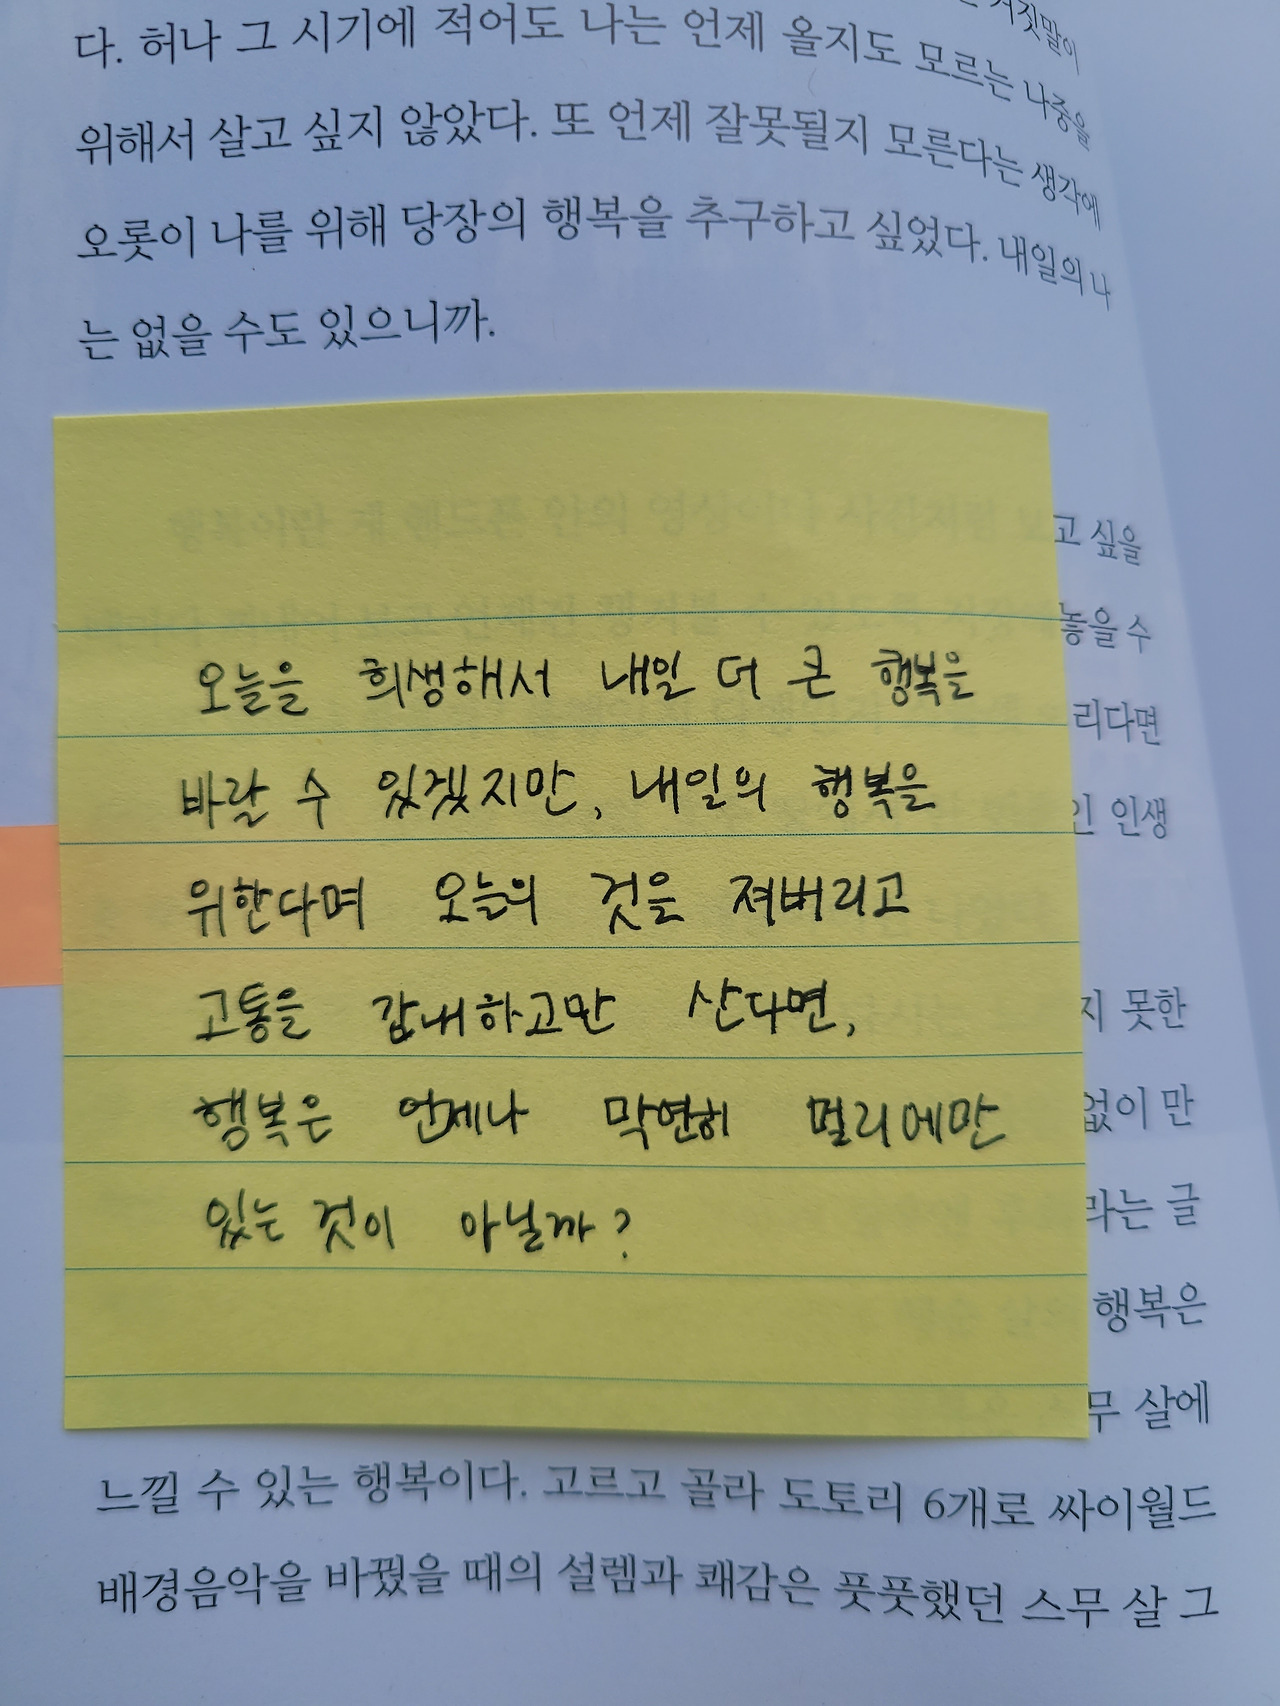 거짓말이
다. 허나 그 시기에 적어도 나는 언제 올지도 모르는 나중을
위해서 살고 싶지 않았다. 또 언제 잘못될지 모른다는 생각에
오롯이 나를 위해 당장의 행복을 추구하고 싶었다. 내일의 나
는 없을 수도 있으니까.
고 싶을
놓을 수
리다면
인 인생
지 못한
없이 만
라는 글
행복은
무 살에
오늘을 희생해서 내일 더 큰 행복을
바랄 수 있겠지만, 내일의 행복을
위한다며 오늘의 것을 져버리고
고통을 감내하고만 산다면,
행복은 언제나 막연히 멀리에만
있는 것이 아닐까?
느낄 수 있는 행복이다. 고르고 골라 도토리 6개로 싸이월드
배경음악을 바꿨을 때의 설렘과 쾌감은 풋풋했던 스무 살 그